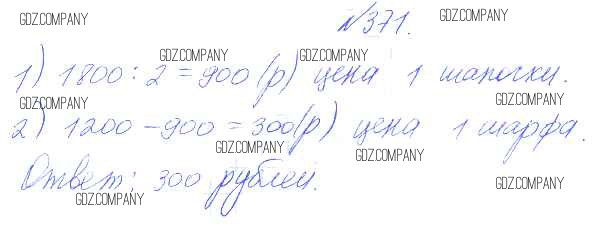 GDZ.COMPANY №371. GDZ.COMPANY
GDZ.COMPANY GDZ.COMPANY
1) 1800 : 2 = 900 (р) цена 1 шапочки.
GDZ.COMPANY GDZ.COMPANY
2) 1200 - 900 = 300(р) цена 1 шарфа.
GDZ.COMPANY GDZ.COMPANY
Ответ: 300 рублей.
GDZ.COMPANY GDZ.COMPANY